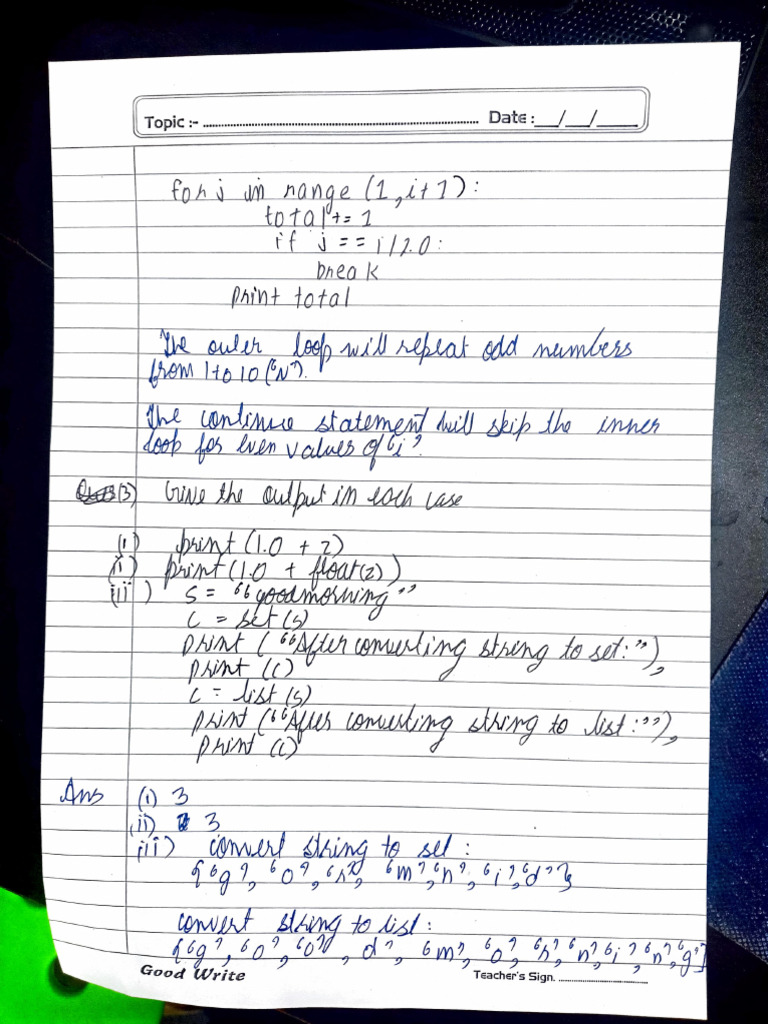 Topic :- Date : __/__/____
for j in range (1, i+1):
total += 1
if j == i/2.0:
break
print total
The outer loop will repeat odd numbers
from 1 to 10 (‘N’).
The continue statement will skip the inner
loop for even values of ‘i’.
(3) Give the output in each case
(i) print (1.0 + 2)
(ii) print (1.0 + float(2))
(iii) s = “goodmorning”
c = set (s)
print (“After converting string to set:”),
print (c)
c = list (s)
print (“After converting string to list :”),
print (c)
Ans (i) 3
(ii) 3
(iii) convert string to set :
{‘g’, ‘o’, ‘r’, ‘m’, ‘n’, ‘i’, ‘d’}
convert string to list :
[‘g’, ‘o’, ‘o’, d’, ‘m’, ‘o’, ‘r’, ‘n’, ‘i’, ‘n’, ‘g’]
Good Write Teacher's Sign.